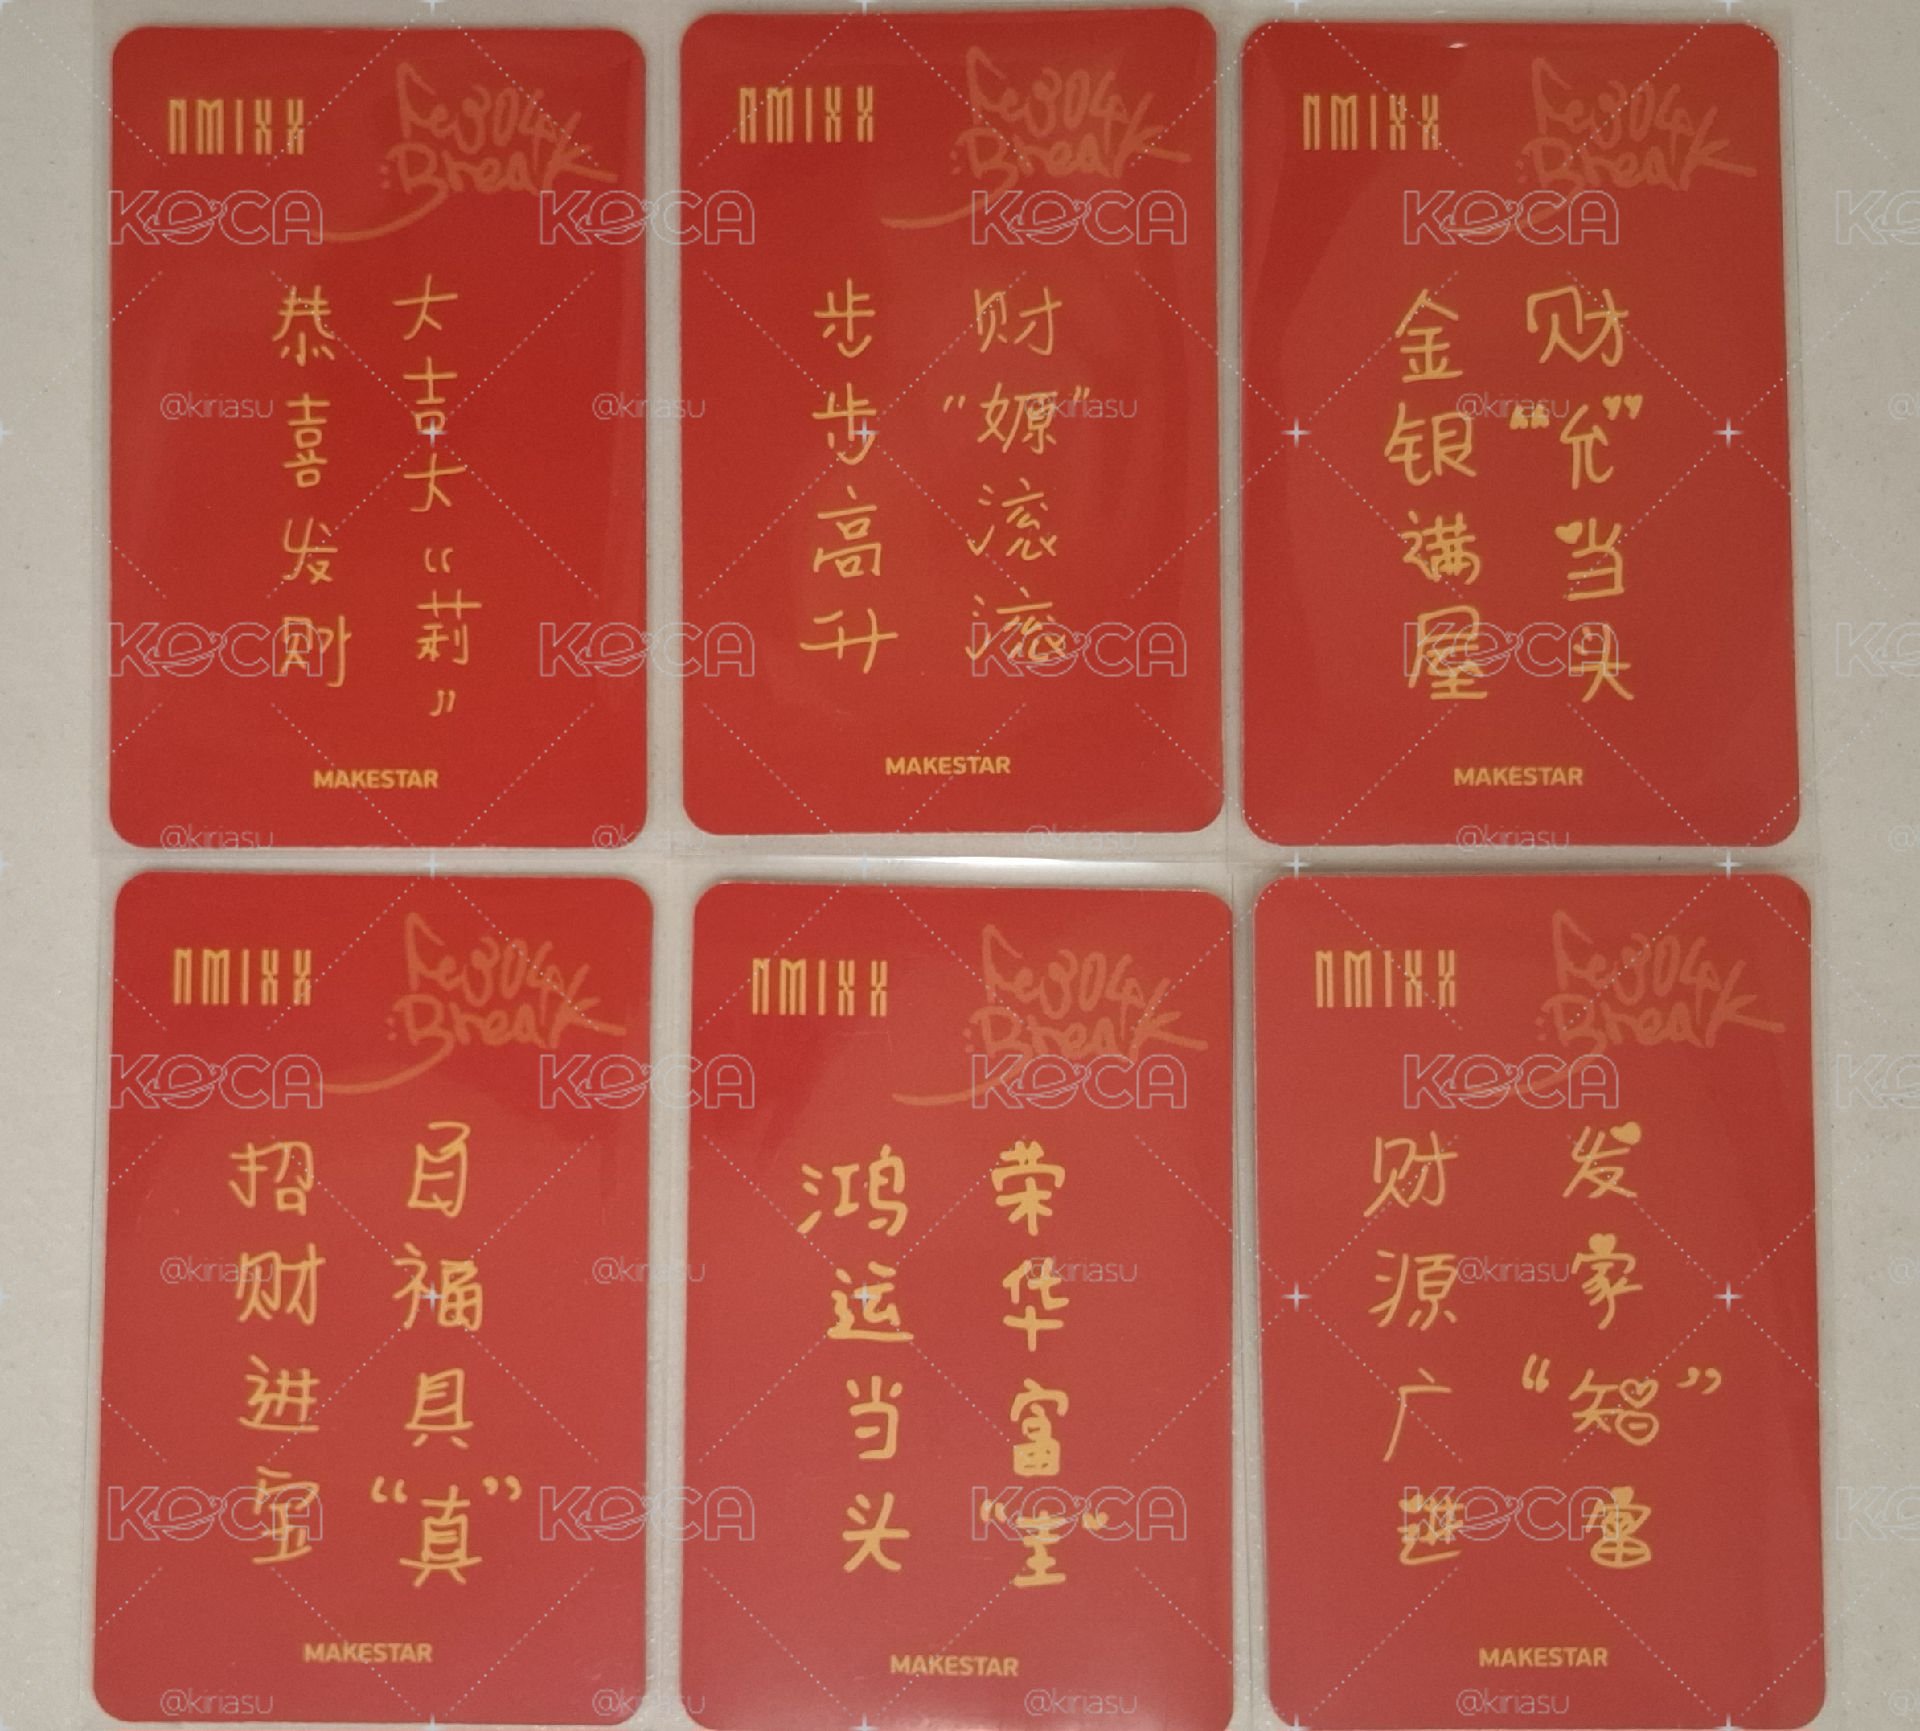 NMIXX
Fe3O4: Break
大吉大“莉”
恭喜发财
MAKESTAR
NMIXX
Fe3O4: Break
财“嫄”滚滚
步步高升
MAKESTAR
NMIXX
Fe3O4: Break
财“允”当头
金银满屋
MAKESTAR
NMIXX
Fe3O4: Break
百福具“真”
招财进宝
MAKESTAR
NMIXX
Fe3O4: Break
荣华富“圭”
鸿运当头
MAKESTAR
NMIXX
Fe3O4: Break
发家“智”富
财源广進
MAKESTAR
KOCA
@kiriasu